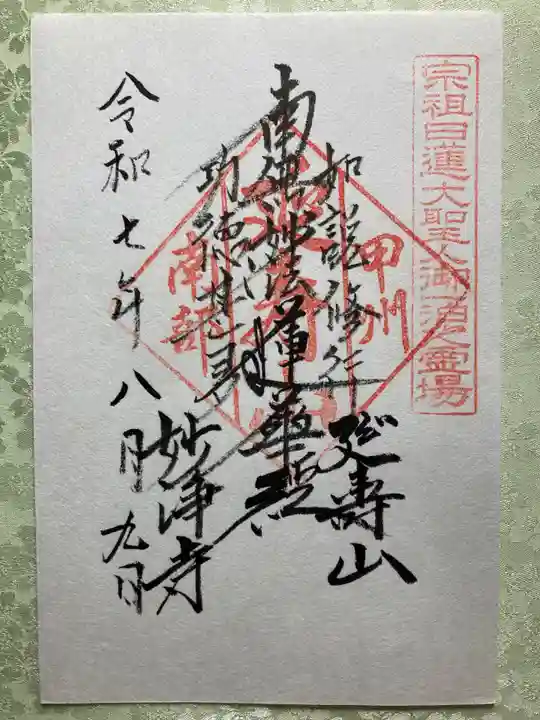 宗祖日蓮大聖人御宿泊霊場
甲州
南部
如説修行
延壽山
南無妙法蓮華経
功徳甚多
妙浄寺
令和七年八月九日